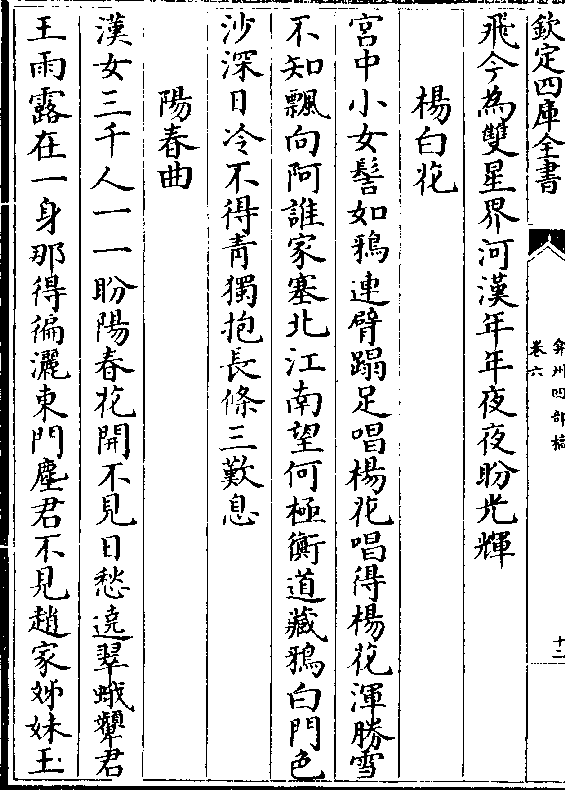 欽定四庫全書
弇州四部稿
卷六
十二
飛今為雙星界河漢年年夜夜盼光輝
楊白花
宮中小女髻如鴉連臂蹋足唱楊花唱得楊花渾勝雪
不知飄向阿誰家塞北江南望何極衡道藏鴉白門色
沙深日冷不得青獨抱長條三歎息
陽春曲
漢女三千人一一盼陽春花開不見日愁遶翠蛾顰君
王雨露在一身那得徧灑東門塵君不見趙家姊妹玉